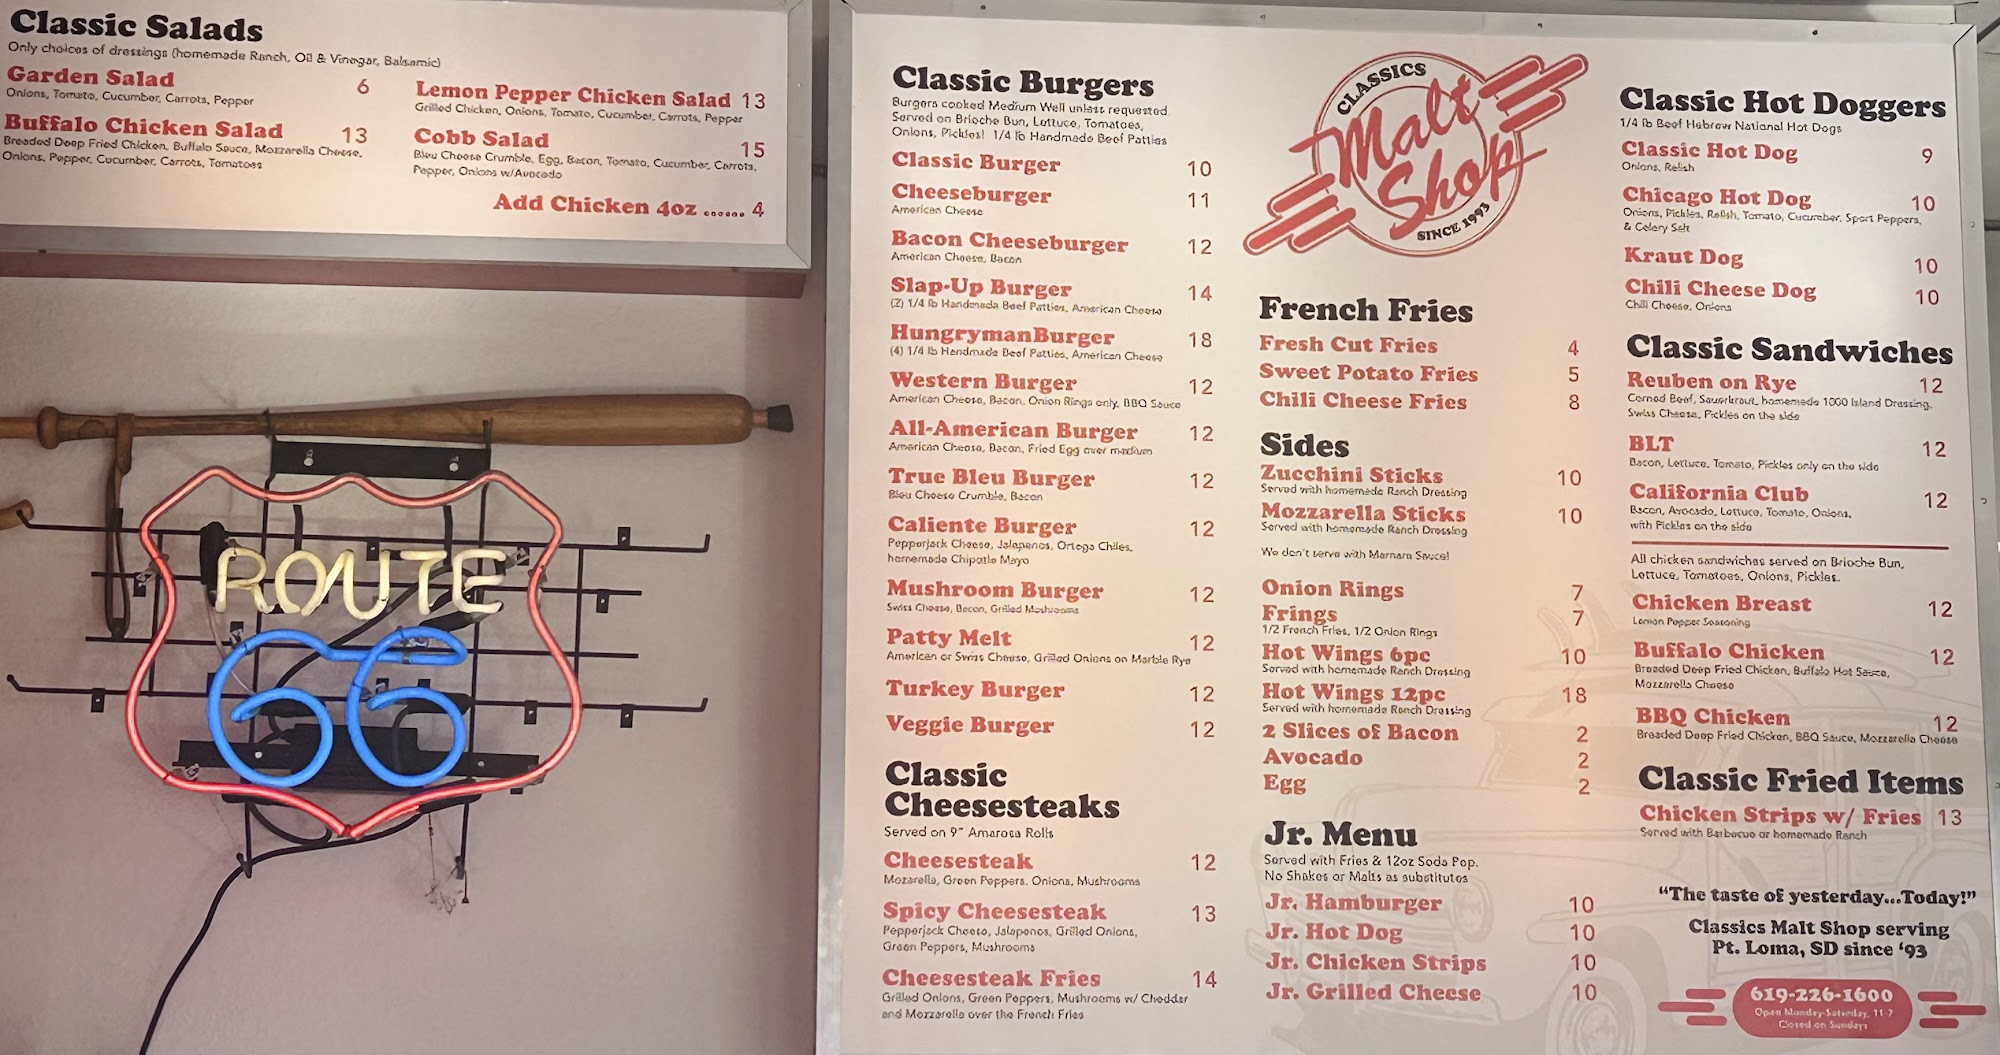 Classic Salads
Only choices of dressings (homemade Ranch, Oil & Vinegar, Balsamic)
Garden Salad 6
Onions, Tomato, Cucumber, Carrots, Pepper
Buffalo Chicken Salad 13
Breaded Deep Fried Chicken, Buffalo Sauce, Mozzarella Cheese,
Onions, Pepper, Cucumber, Carrots, Tomatoes
Lemon Pepper Chicken Salad 13
Grilled Chicken, Onions, Tomato, Cucumber, Carrots, Pepper
Cobb Salad 15
Bleu Cheese Crumble, Egg, Bacon, Tomato, Cucumber, Carrots,
Pepper, Onions w/Avocado
Add Chicken 4oz ...... 4
ROUTE
66
Classic Burgers
Burgers cooked Medium Well unless requested.
Served on Brioche Bun, Lettuce, Tomatoes,
Onions, Pickles! 1/4 lb Handmade Beef Patties
Classic Burger 10
Cheeseburger 11
American Cheese
Bacon Cheeseburger 12
American Cheese, Bacon
Slap-Up Burger 14
(2) 1/4 lb Handmade Beef Patties, American Cheese
HungrymanBurger 18
(4) 1/4 lb Handmade Beef Patties, American Cheese
Western Burger 12
American Cheese, Bacon, Onion Rings only, BBQ Sauce
All-American Burger 12
American Cheese, Bacon, Fried Egg over medium
True Bleu Burger 12
Bleu Cheese Crumble, Bacon
Caliente Burger 12
Pepperjack Cheese, Jalapenos, Ortega Chiles,
homemade Chipotle Mayo
Mushroom Burger 12
Swiss Cheese, Bacon, Grilled Mushrooms
Patty Melt 12
American or Swiss Cheese, Grilled Onions on Marble Rye
Turkey Burger 12
Veggie Burger 12
Classic
Cheesesteaks
Served on 9" Amaroso Rolls
Cheesesteak 12
Mozarella, Green Peppers, Onions, Mushrooms
Spicy Cheesesteak 13
Pepperjack Cheese, Jalapenos, Grilled Onions,
Green Peppers, Mushrooms
Cheesesteak Fries 14
Grilled Onions, Green Peppers, Mushrooms w/ Cheddar
and Mozzarella over the French Fries
CLASSICS
Malt
Shop
SINCE 1993
French Fries
Fresh Cut Fries 4
Sweet Potato Fries 5
Chili Cheese Fries 8
Sides
Zucchini Sticks 10
Served with homemade Ranch Dressing
Mozzarella Sticks 10
Served with homemade Ranch Dressing
We don't serve with Marinara Sauce!
Onion Rings 7
Frings 7
1/2 French Fries, 1/2 Onion Rings
Hot Wings 6pc 10
Served with homemade Ranch Dressing
Hot Wings 12pc 18
Served with homemade Ranch Dressing
2 Slices of Bacon 2
Avocado 2
Egg 2
Jr. Menu
Served with Fries & 12oz Soda Pop.
No Shakes or Malts as substitutes
Jr. Hamburger 10
Jr. Hot Dog 10
Jr. Chicken Strips 10
Jr. Grilled Cheese 10
Classic Hot Doggers
1/4 lb Beef Hebrew National Hot Dogs
Classic Hot Dog 9
Onions, Relish
Chicago Hot Dog 10
Onions, Pickles, Relish, Tomato, Cucumber, Sport Peppers,
& Celery Salt
Kraut Dog 10
Chili Cheese Dog 10
Chili Cheese, Onions
Classic Sandwiches
Reuben on Rye 12
Corned Beef, Sauerkraut, homemade 1000 Island Dressing,
Swiss Cheese, Pickles on the side
BLT 12
Bacon, Lettuce, Tomato, Pickles only on the side
California Club 12
Bacon, Avocado, Lettuce, Tomato, Onions,
with Pickles on the side
All chicken sandwiches served on Brioche Bun,
Lettuce, Tomatoes, Onions, Pickles.
Chicken Breast 12
Lemon Pepper Seasoning
Buffalo Chicken 12
Breaded Deep Fried Chicken, Buffalo Hot Sauce,
Mozzarella Cheese
BBQ Chicken 12
Breaded Deep Fried Chicken, BBQ Sauce, Mozzarella Cheese
Classic Fried Items
Chicken Strips w/ Fries 13
Served with Barbecue or homemade Ranch
"The taste of yesterday...Today!"
Classics Malt Shop serving
Pt. Loma, SD since '93
619-226-1600
Open Monday-Saturday, 11-7
Closed on Sundays